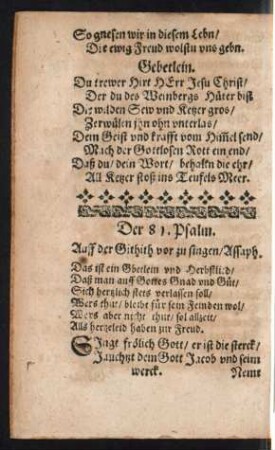 So gnesen wir in diesem Lebn/
Die ewig Freud wolstu vns gebn.
Gebetlein.
Du trewer Hirt HErr Jesu Christ/
Der du des Weinbergs Hüter bist
Die wilden Sew vnd Ketzer gros/
Zerwülen jhn ohn vnterlas/
Dein Geist vnd krafft vom Him̃el send/
Mach der Gottlosen Rott ein end/
Daß du/ dein Wort/ behaltn die ehr/
All Ketzer stoß ins Teufels Meer.
Der 81. Psalm.
Auff der Githith vor zu singen/ Assaph.
Das ist ein Betlein vnd Herbstlied/
Daß man auff Gottes Gnad vnd Güt/
Sich hertzlich stets verlassen soll/
Wers thut/ bleibt für sein Feinden wol/
Wers aber nicht thut/ sol allzeit/
Alls hertzeleid haben zur Freud.
SIngt frölich Gott/ er ist die sterck/
Jauchtzt dem Gott Jacob vnd seim
werck. Nemt